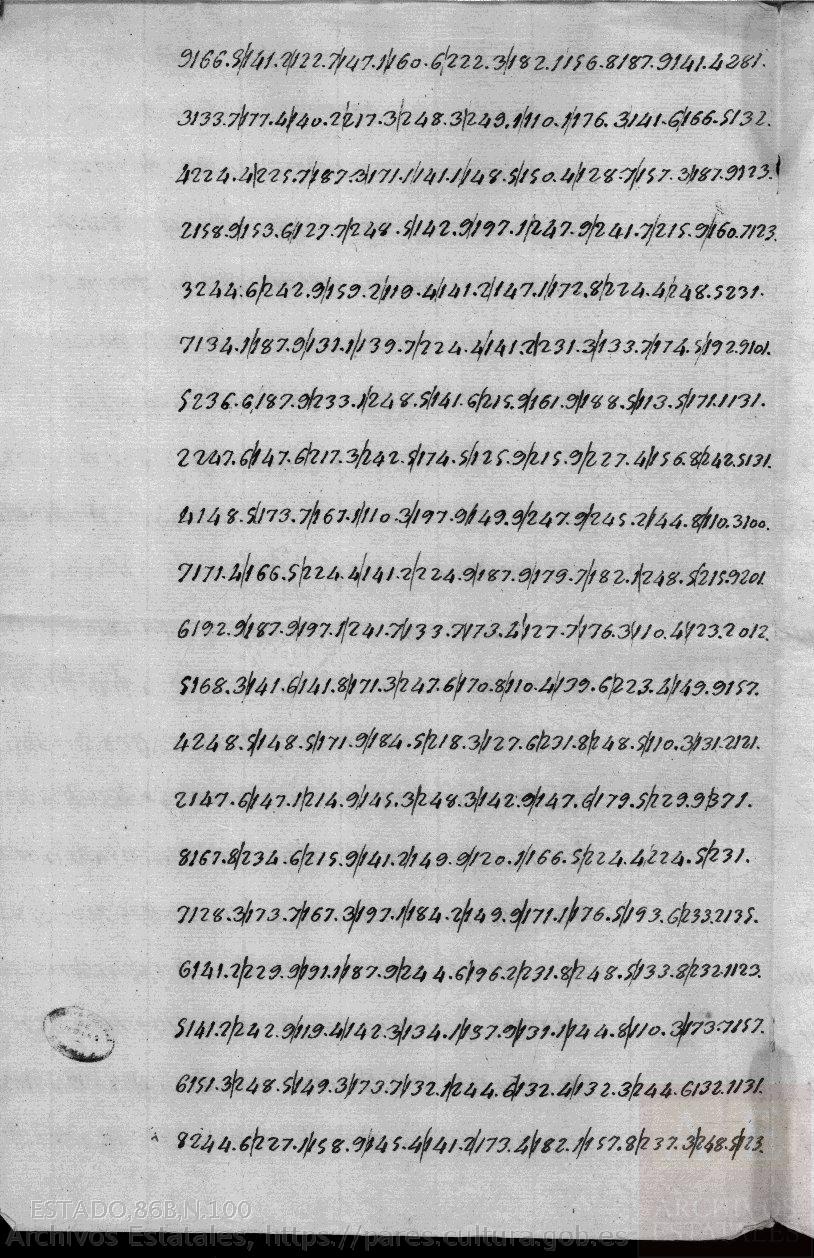 9166.5/141.2/122.7/147.1/160.6/222.3/182.1156.8187.9141.4281.
3133.7/177.4/140.2/217.3/248.3/249.1/110.1/176.3/141.6/166.5132.
4224.4/225.7/187.3/171.1/141.1/148.5/150.4/128.7/157.3/187.9123.
2158.9/153.6/127.7/248.5/142.9/197.1/247.9/241.7/215.9/160.7123.
3244.6/242.9/159.2/119.4/141.2/147.1/172.8/224.4/248.5231.
7134.1/187.9/131.1/139.7/224.4/141.2/231.3/133.7/174.5/192.9101.
5236.6/187.9/233.1/248.5/141.6/215.9/161.9/188.5/113.5/171.1131.
2247.6/147.6/217.3/242.5/174.5/125.9/215.9/227.4/156.8/242.5131.
4148.5/173.7/167.1/110.3/197.9/149.9/247.9/245.2/144.8/110.3100.
7171.4/166.5/224.4/141.2/224.9/187.9/179.7/182.1/248.5/215.9201.
6192.9/187.9/197.1/241.7/133.7/173.4/127.7/176.3/110.4/123.2012.
5168.3/141.6/141.8/171.3/247.6/170.8/110.4/139.6/223.4/149.9157.
4248.5/148.5/171.9/184.5/218.3/127.6/231.8/248.5/110.3/131.2121.
2147.6/147.1/214.9/145.3/248.3/142.9/147.6/179.5/229.9/371.
8167.8/234.6/215.9/141.2/149.9/120.1/166.5/224.4/224.5/231.
7128.3/173.7/167.3/197.1/184.2/149.9/171.1/176.5/193.6/233.2135.
6141.2/229.9/191.1/187.9/244.6/196.2/231.8/248.5/133.8/232.1123.
5141.2/242.9/119.4/142.3/134.1/137.9/131.1/144.8/110.3/173.7157.
6151.3/248.5/149.3/173.7/132.1/244.6/132.4/132.3/244.6132.1131.
8244.6/227.1/158.9/145.4/141.2/173.4/182.1/157.8/237.3/248.5/123.
ESTADO,86B,N.100
Archivos Estatales, https://pares.cultura.gob.es
ARCHIVOS
ESTATALES